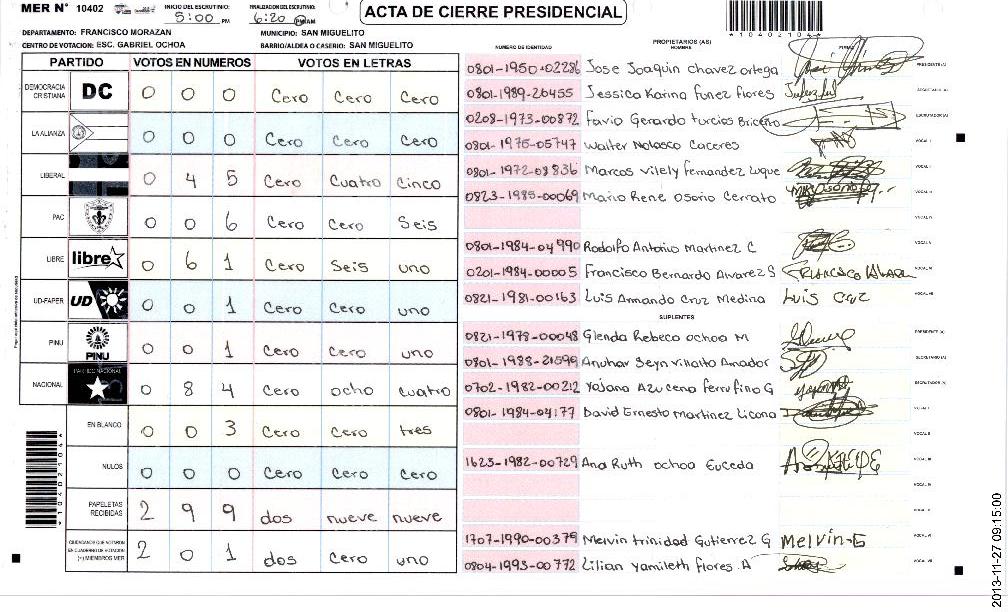 MER N° 10402
INICIO DEL ESCRUTINIO: 5:00 PM
FINALIZACION DEL ESCRUTINIO: 6:20 PM AM
ACTA DE CIERRE PRESIDENCIAL
*10402104*
DEPARTAMENTO: FRANCISCO MORAZAN
MUNICIPIO: SAN MIGUELITO
CENTRO DE VOTACION: ESC. GABRIEL OCHOA
BARRIO/ALDEA O CASERIO: SAN MIGUELITO
PARTIDO VOTOS EN NUMEROS VOTOS EN LETRAS
DEMOCRACIA CRISTIANA DC 0 0 0 Cero Cero Cero
LA ALIANZA 0 0 0 Cero Cero Cero
LIBERAL 0 4 5 Cero Cuatro Cinco
PAC 0 0 6 Cero Cero Seis
LIBRE libre 0 6 1 Cero Seis uno
UD-FAPER UD 0 0 1 Cero Cero uno
PINU PINU 0 0 1 Cero Cero uno
NACIONAL PARTIDO NACIONAL 0 8 4 Cero ocho cuatro
EN BLANCO 0 0 3 Cero Cero tres
NULOS 0 0 0 Cero Cero Cero
PAPELETAS RECIBIDAS 2 9 9 dos nueve nueve
CIUDADANOS QUE VOTARON EN CUADERNO DE VOTACION (+) MIEMBROS MER 2 0 1 dos Cero uno
PROPIETARIOS (AS)
NUMERO DE IDENTIDAD NOMBRE FIRMA
0801-1950-02286 Jose Joaquin chavez ortega PRESIDENTE (A)
0801-1989-20455 Jessica Karina Funez flores SECRETARIO (A)
0208-1973-00872 Favio Gerardo turcios Briceño ESCRUTADOR (A)
0801-1975-05747 Walter Nolasco Caceres VOCAL I
0801-1972-08836 Marcos Vilely fernandez Luque VOCAL II
0823-1985-00069 Mario Rene Osorio Cerrato VOCAL III
VOCAL IV
0801-1984-04990 Rodolfo Antonio Martinez C VOCAL V
0201-1984-00005 Francisco Bernardo Alvarez S VOCAL VI
0821-1981-00163 Luis Armando Cruz Medina Luis Cruz VOCAL VII
SUPLENTES
0821-1978-00048 Glenda Rebeco ochoa M PRESIDENTE (A)
0801-1988-21599 Anuhar Seyn Villalta Amador SECRETARIO (A)
0702-1982-00212 Yojana Azucena ferrufino G ESCRUTADOR (A)
0801-1984-04177 David Ernesto Martinez Licona VOCAL I
VOCAL II
1623-1982-00729 Ana Ruth ochoa Euceda VOCAL III
VOCAL IV
VOCAL V
1707-1990-00379 Melvin trinidad Gutierrez G Melvin-E VOCAL VI
0804-1993-00772 Lilian Yamileth flores A VOCAL VII
*10402104*
2013-11-27 09:15:00